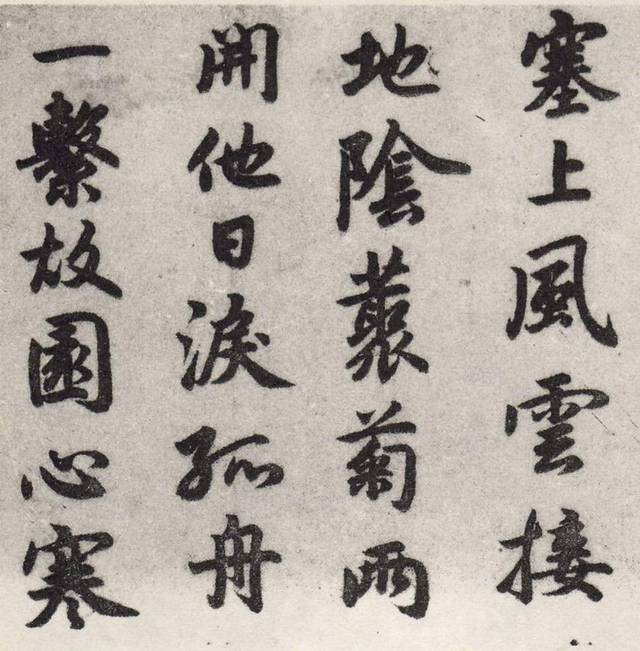 塞上風雲接
地陰叢菊兩
開他日淚孤舟
一繫故園心寒